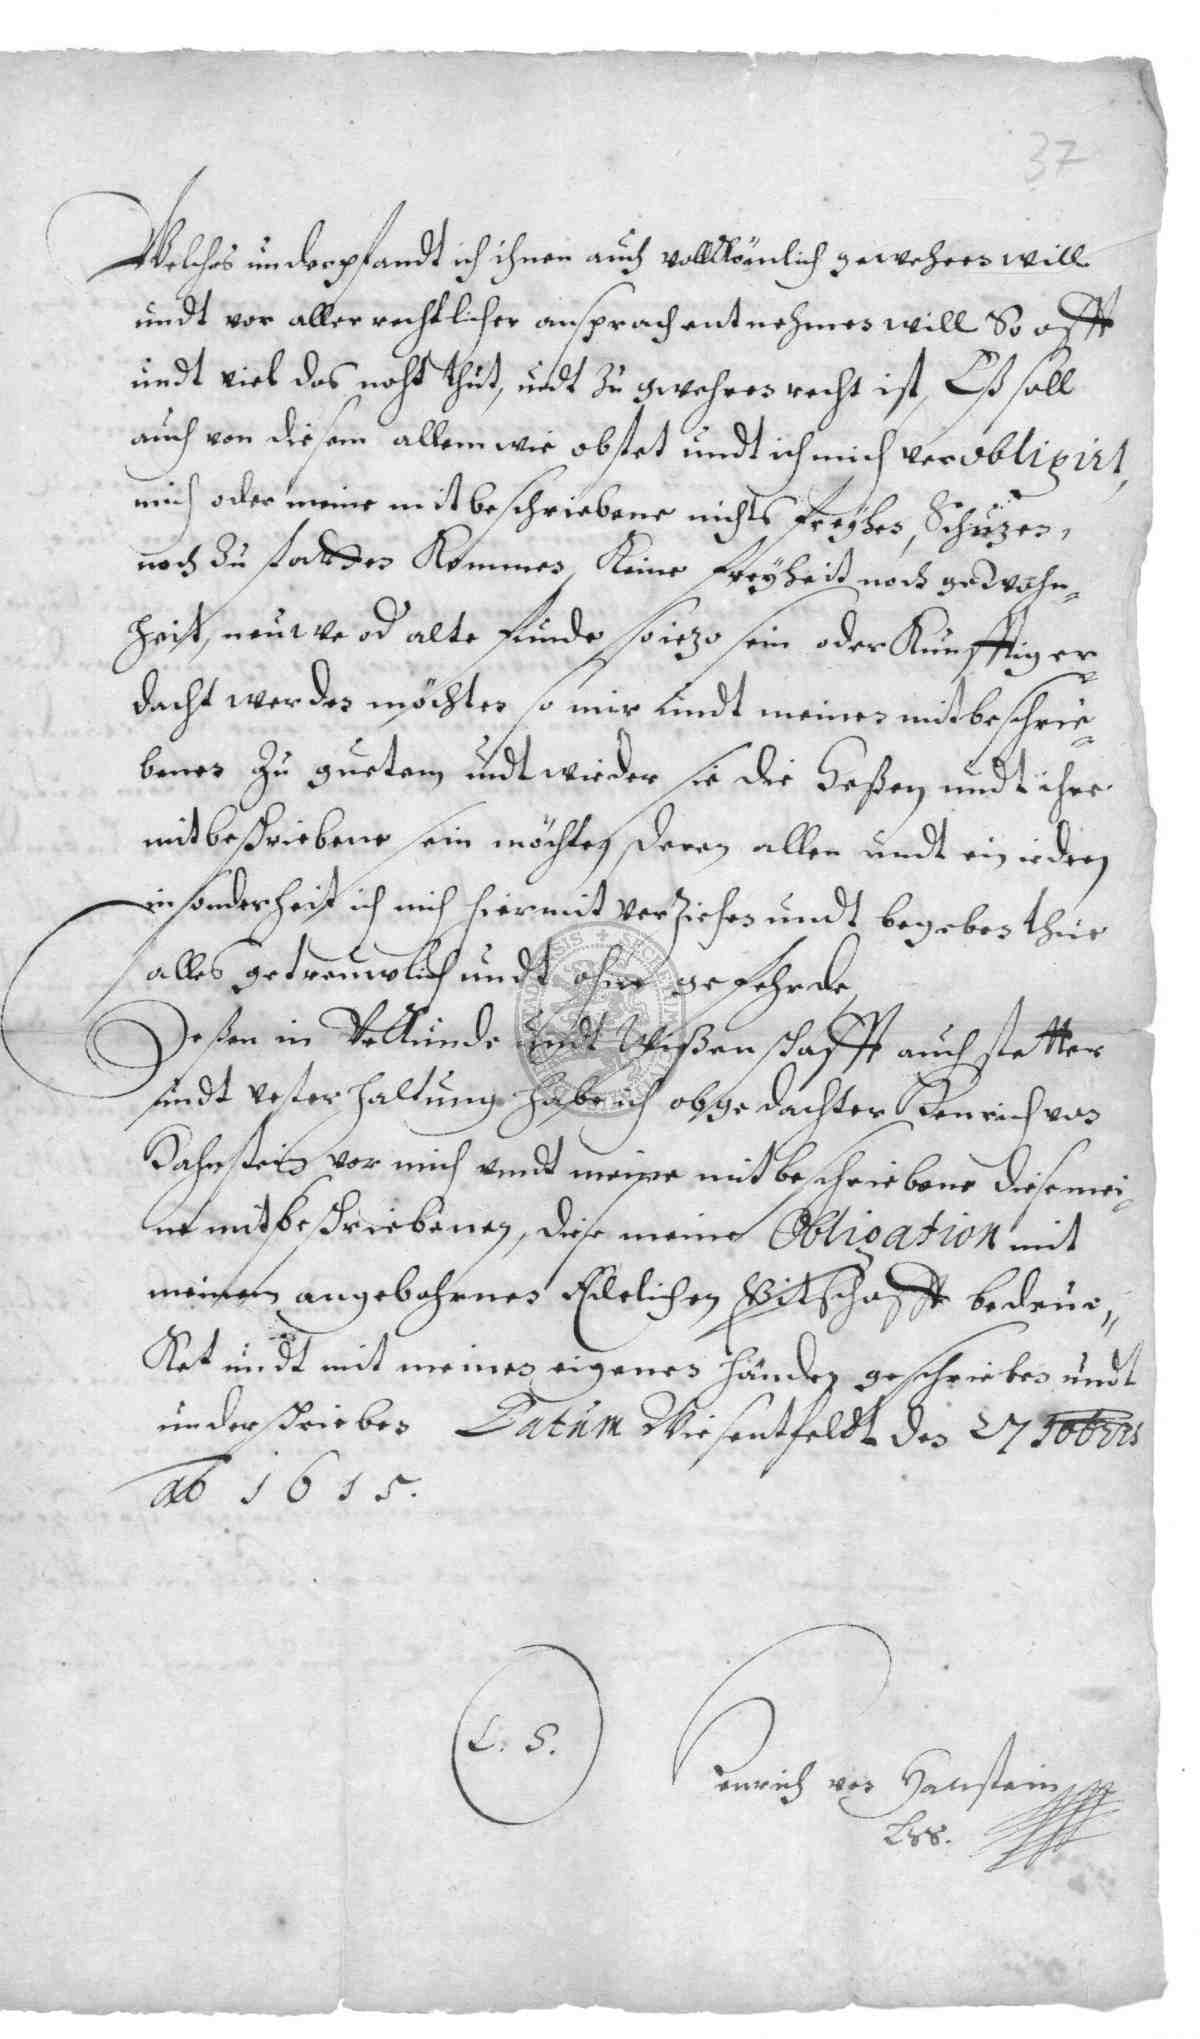 37
Welches underpfandt ich ihnen auch vollkömlich gewehren will
undt vor aller rechtlicher ansprach entnehmen will So offt
undt viel das noht thut, undt zu gwehren recht ist, Eß soll
auch von diesem allem wie obstet undt ich mich verobligirt,
mich oder meine mitbeschriebene nichts freyhen, Schüzen,
noch zu statten kommen, keine freyheit noch gewohn-
heit, neuwe od alte funde so iezo sein oder künfftig er-
dacht werden möchten so mir undt meinen mitbeschrie-
benen zu guetem undt wieder sie die Heßen undt ihre
mitbeschriebene sein möchten deren allen undt ein ieden
in sonderheit ich mich hiermit verziehen undt begeben thue
alles getreuwlich undt ohne gefehrde,
Deßen in Uhrkunde undt Wißenschafft auch stetter
undt vester haltung habe ich obgedachter Henrich von
Hahnstein vor mich undt meine mitbeschriebene diese mei-
ne mitbeschriebenen, diese meine Obligation mit
meinem angebohrnen Edelichen Pitschafft bedruc-
ket undt mit meinen eigenen händen geschrieben undt
underschrieben Datum Wiesentfeldt den 27
ao 1615.
L. S.
Henrich von Hanstein